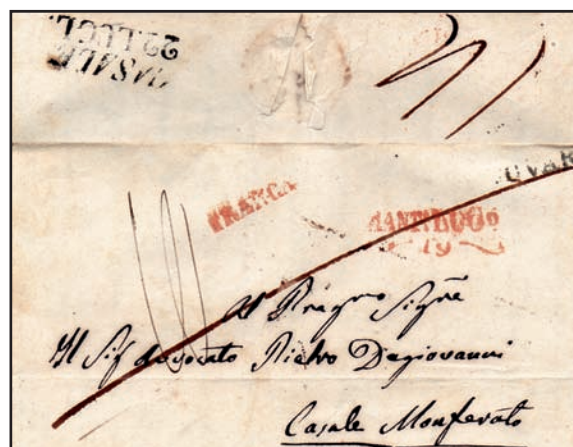 CASALE
22 LUGL.
OVAR
FRANCA
MANT. LUGo
19
Al Pregmo Signe
Il Sig Avocato Pietro Dagiovanni
Casale Monferato